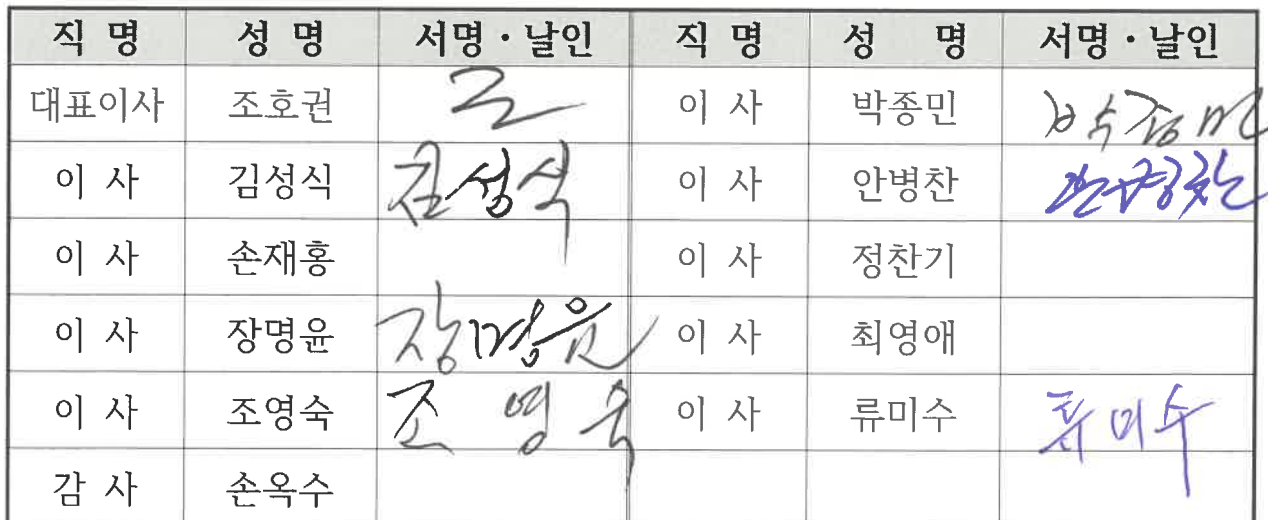 직 명 성 명 서명·날인 직 명 성 명 서명·날인
대표이사 조호권 이 사 박종민 박종민
이 사 김성식 김성식 이 사 안병찬 안병찬
이 사 손재홍 이 사 정찬기
이 사 장명윤 장명윤 이 사 최영애
이 사 조영숙 조영숙 이 사 류미수 류미수
감 사 손옥수